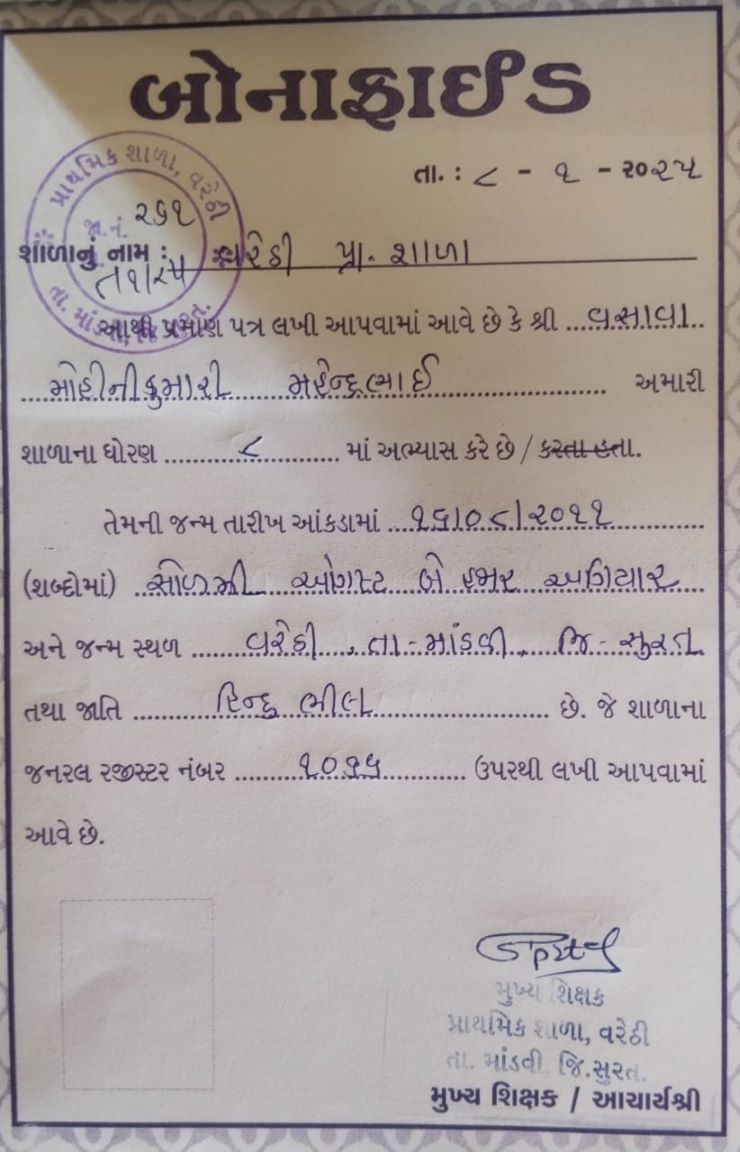 બોનાફાઈડ
પ્રાથમિક શાળા, વરેઠી
તા. : ૮ - ૧ - ૨૦૨૫
જા.નં. ૨૭૧
શાળાનું નામ : વરેઠી પ્રા. શાળા
તા. માંડવી, જિ. સુરત.
આથી પ્રમાણ પત્ર લખી આપવામાં આવે છે કે શ્રી ...વસાવા..
...મોહીનીકુમારી મહેન્દ્રભાઈ... અમારી
શાળાના ધોરણ ...૮... માં અભ્યાસ કરે છે / કરતા હતા.
તેમની જન્મ તારીખ આંકડામાં ...૧૬/૦૮/૨૦૧૧...
(શબ્દોમાં) ..સોળમી ઓગસ્ટ બે હજાર અગિયાર..
અને જન્મ સ્થળ ...વરેઠી, તા-માંડવી, જિ-સુરત
તથા જાતિ ...હિન્દુ ભીલ... છે. જે શાળાના
જનરલ રજીસ્ટર નંબર ... ઉપરથી લખી આપવામાં
આવે છે.
મુખ્ય શિક્ષક
પ્રાથમિક શાળા, વરેઠી
તા. માંડવી, જિ.સુરત.
મુખ્ય શિક્ષક / આચાર્યશ્રી